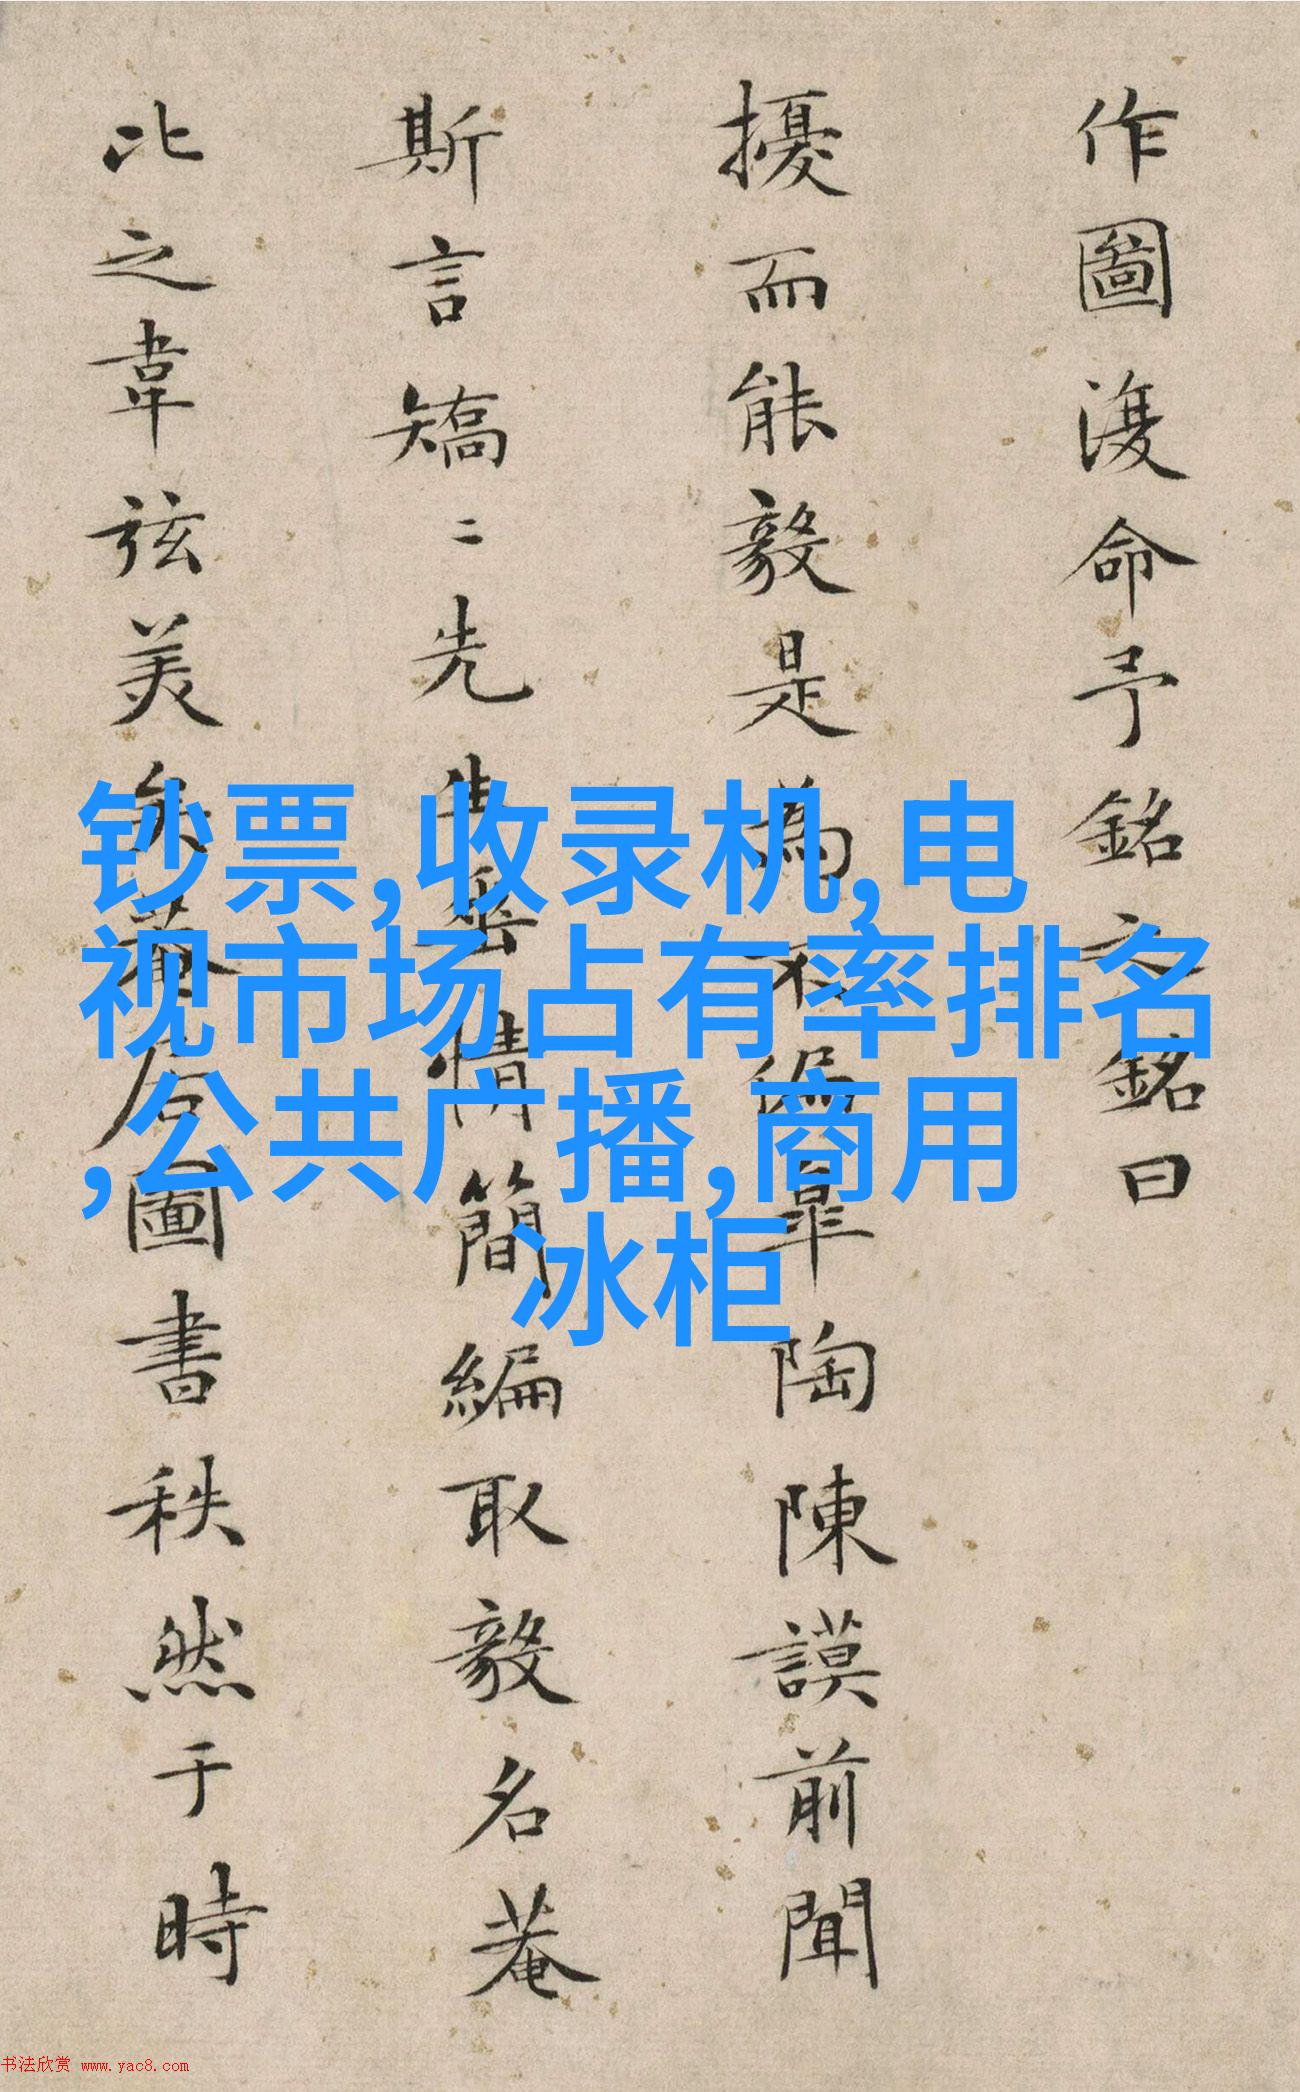 作圖復命予銘之銘曰
擾而能毅是為不編皋陶陳謨前聞
斯言矯二先生喬情簡編取毅名菴
比之韋弦美矣菴居圖書秩然于時
钞票,收录机,电
视市场占有率排名
,公共广播,商用
冰柜
书法欣赏 www.yac8.com